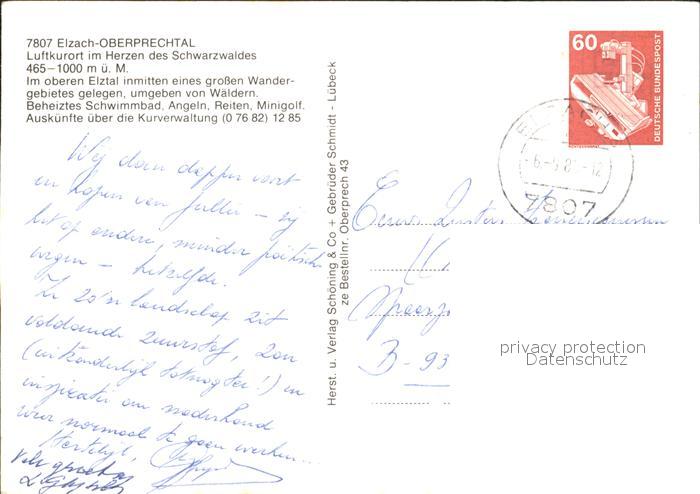 7807 Elzach-OBERPRECHTAL
Luftkurort im Herzen des Schwarzwaldes
465–1000 m ü. M.
Im oberen Elztal inmitten eines großen Wander-
gebietes gelegen, umgeben von Wäldern.
Beheiztes Schwimmbad, Angeln, Reiten, Minigolf.
Auskünfte über die Kurverwaltung (0 76 82) 12 85
Wij doen dapper voort
en hopen van jullie – zij
het op andere, minder poëtische
wijze – hetzelfde.
In zo'n landschap zit
voldoende zuurstof, zon
(uitzonderlijk tot nog toe!) en
inspiratie om naderhand
weer normaal te gaan werken...
Hartelijk,
Vele groeten
Herst. u. Verlag Schöning & Co + Gebrüder Schmidt - Lübeck
ze Bestellnr. Oberprech 43
60
DEUTSCHE BUNDESPOST
ELZACH
7807
B-93
privacy protection
Datenschutz